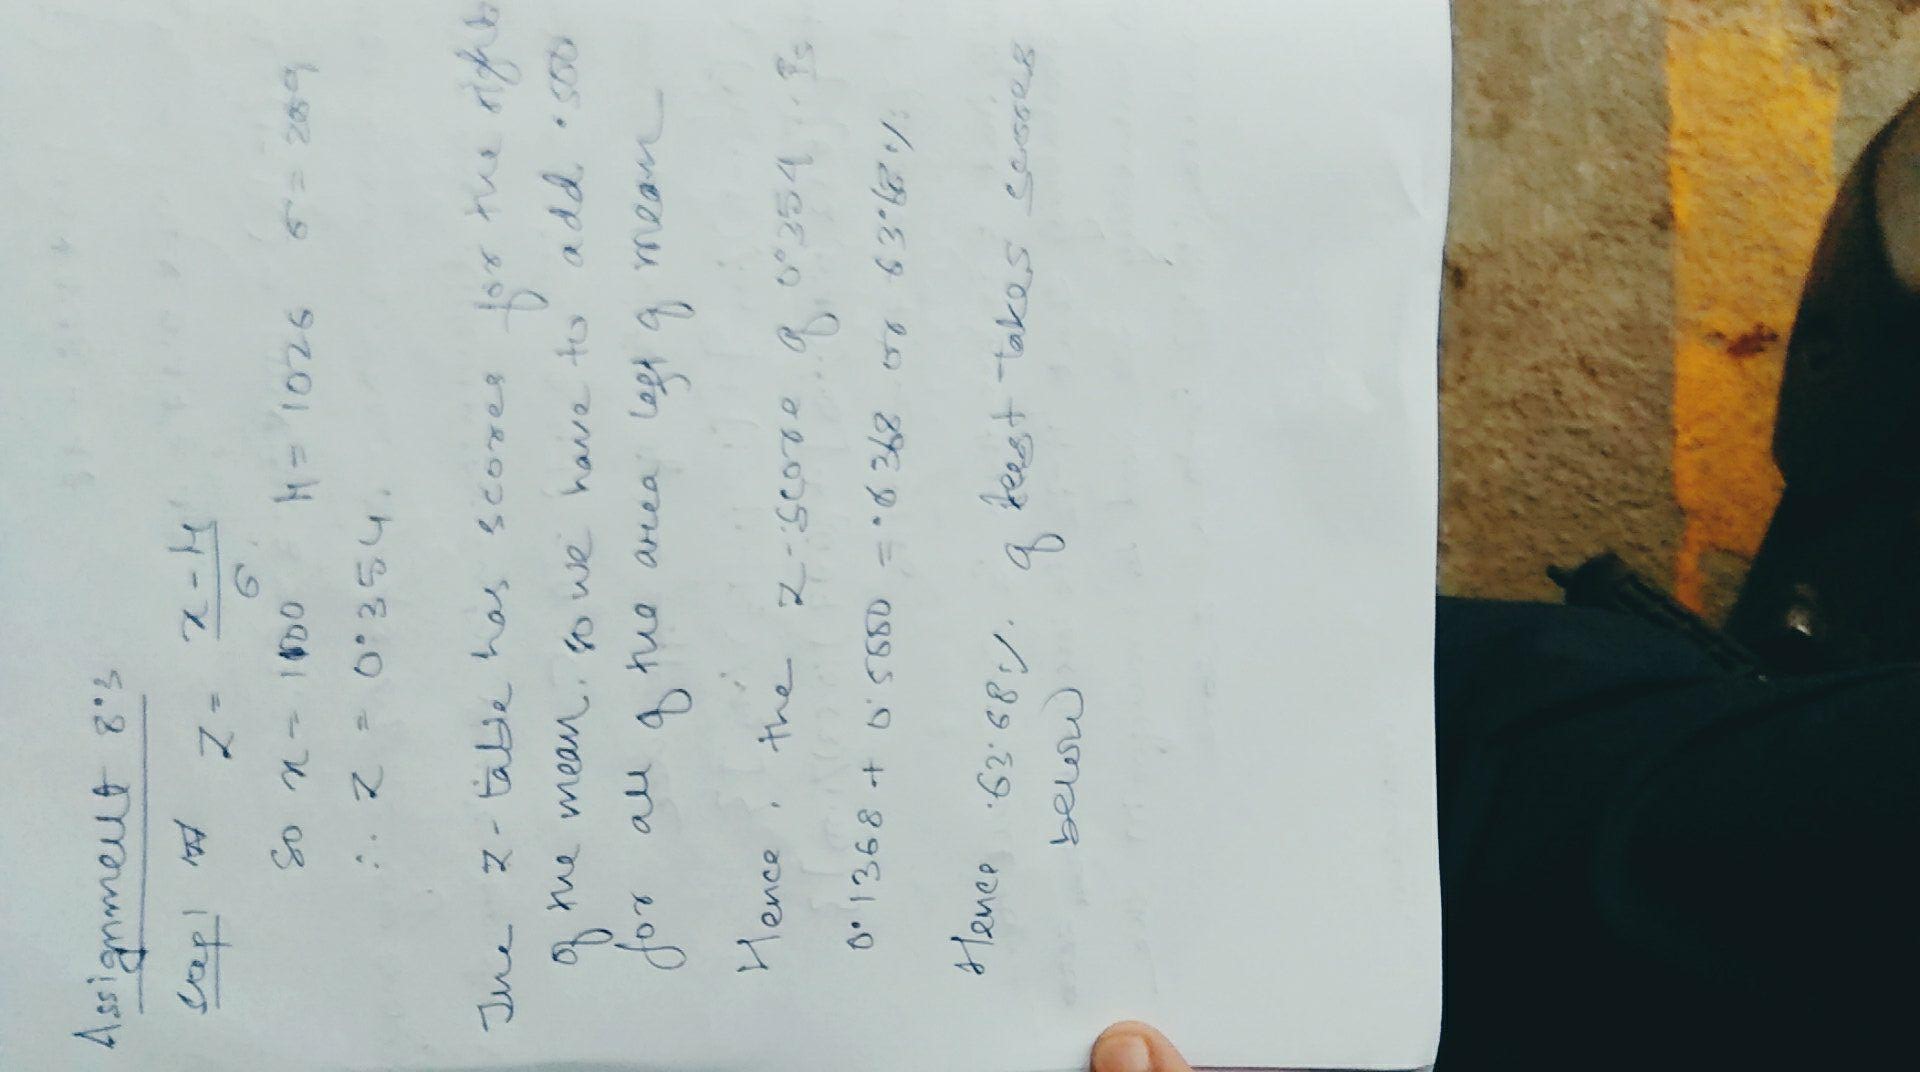 Assignment 8.3
Step 1 Z = x - μ / σ
So x = 1100 μ = 1026 σ = 209
∴ Z = 0.354.
The z-table has scores for the right
of the mean. so we have to add .500
for all of the area left of mean
Hence, the z-score of 0.354. is
0.1368 + 0.5000 = .6368 or 63.68%
Hence 63.68%. of test-takes scores
below